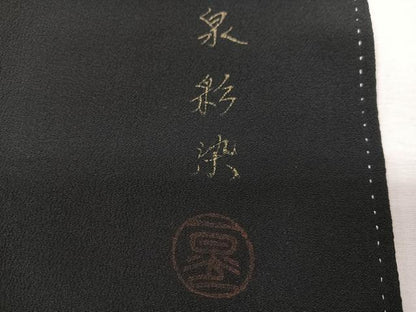 泉彩染